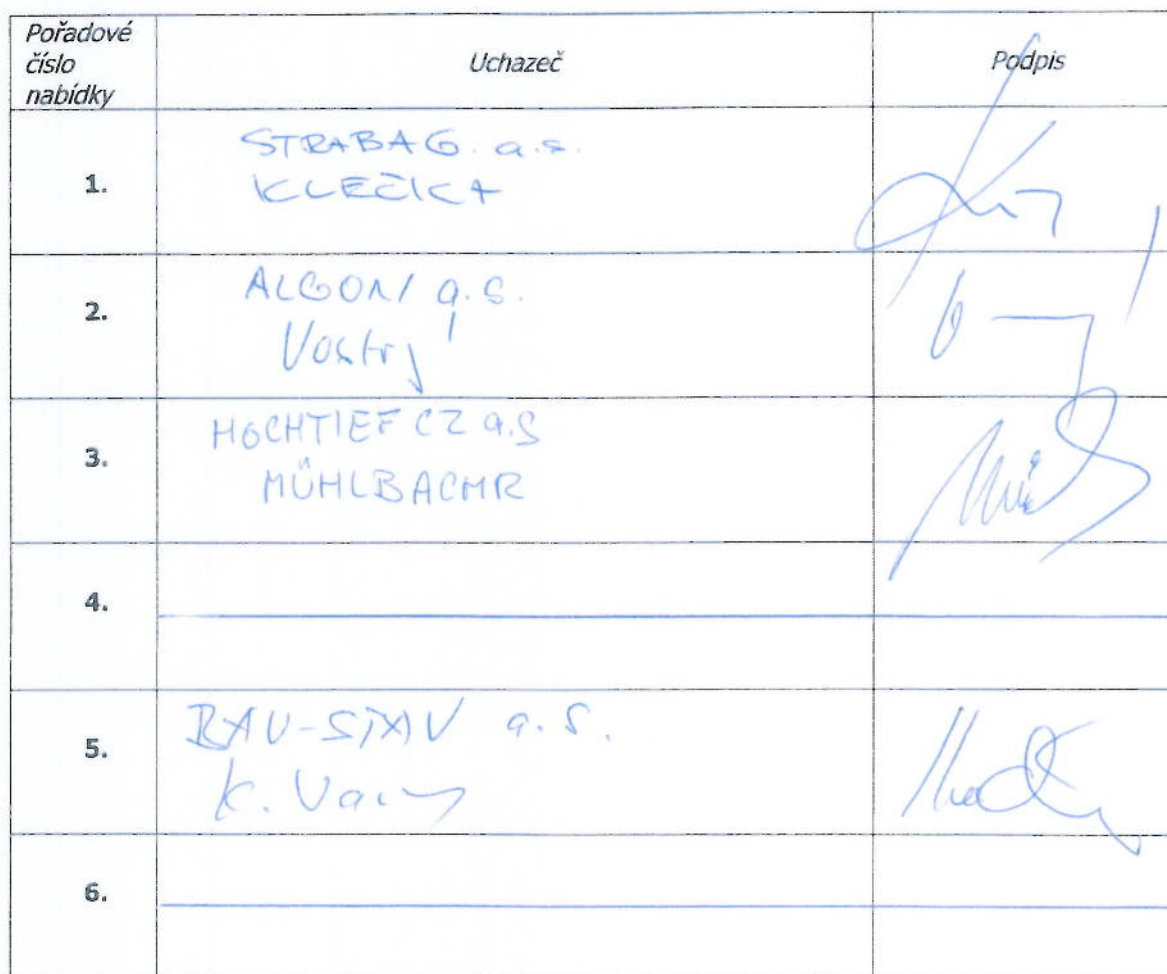 Pořadové
číslo
nabídky
Uchazeč
Podpis
1.
STRABAG. a.s.
KLEČKA
2.
ALGON, a.s.
Vostrý
3.
HOCHTIEF CZ a.s
MÜHLBACHR
4.
5.
BAU-STAV a.s.
K. Vary
6.